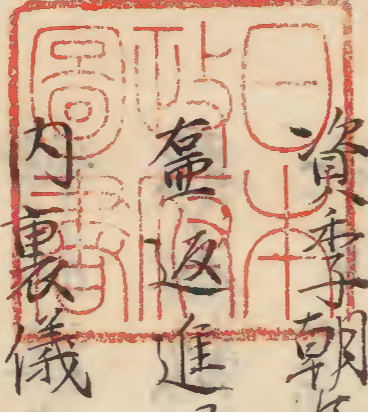 資季朝
返進
内裏儀
日本
政府
圖書